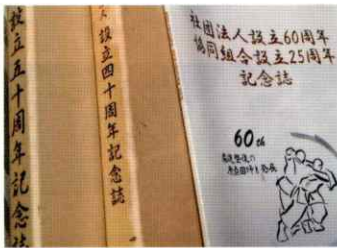 設立五十周年記念誌
設立四十周年記念誌
社団法人設立60周年
協同組合設立25周年
記念誌
60th